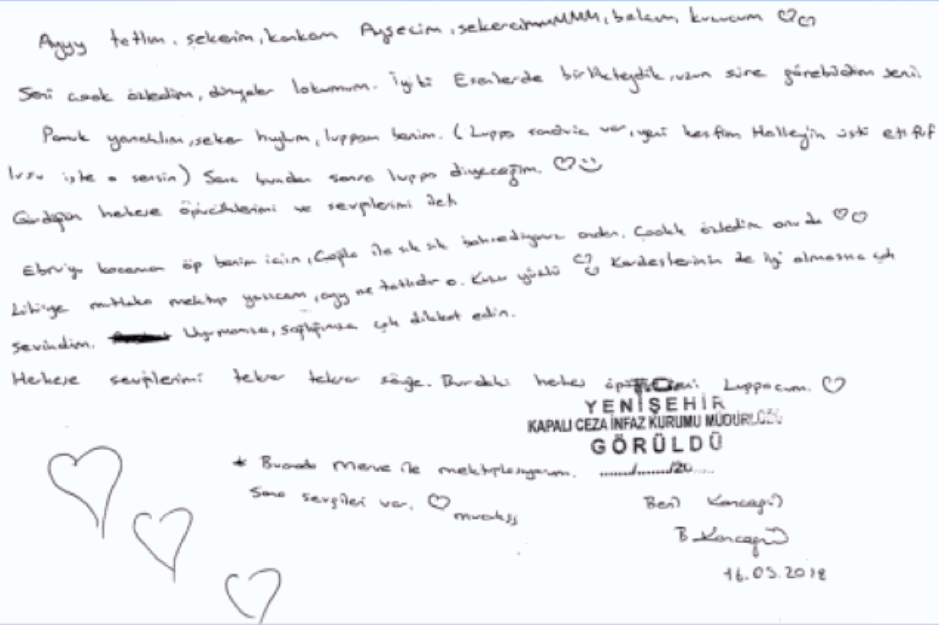 Ayyy tatlım, şekerim, kankam Ayşecim, şekercimmMMM, balım, kuzucum
Seni çook özledim, dünyalar lokumum. İyiki Esenlerde birlikteydik, uzun süre görebildim seni.
Pamuk yanaklım, şeker huylum, luppom benim. (Luppo sandviç var, yeni keşfim Halleyin üstü
işte o sensin) Sana bundan sonra luppo diyeceğim.
Gördüğün herkese öpücüklerimi ve sevgilerimi ilet
kocaman öp benim için, ile sık sık bahsediyoruz ondan. Çoook özledim onu da
mutlaka mektup yazıcam, ayy ne tatlıdır o. Kuzu yüzlü Kardeşlerinin de iyi olmasına çok
sevindim. sağlığınıza çok dikkat edin.
Herkese sevgilerimi tekrar tekrar söyle. Burdaki herkes Luppocum.
YENİŞEHİR
KAPALI CEZA İNFAZ KURUMU MÜDÜRLÜĞÜ
GÖRÜLDÜ
....../....../20.....
* Burada Merve ile mektuplaşıyorum.
Sana sevgileri var.
16.05.2018